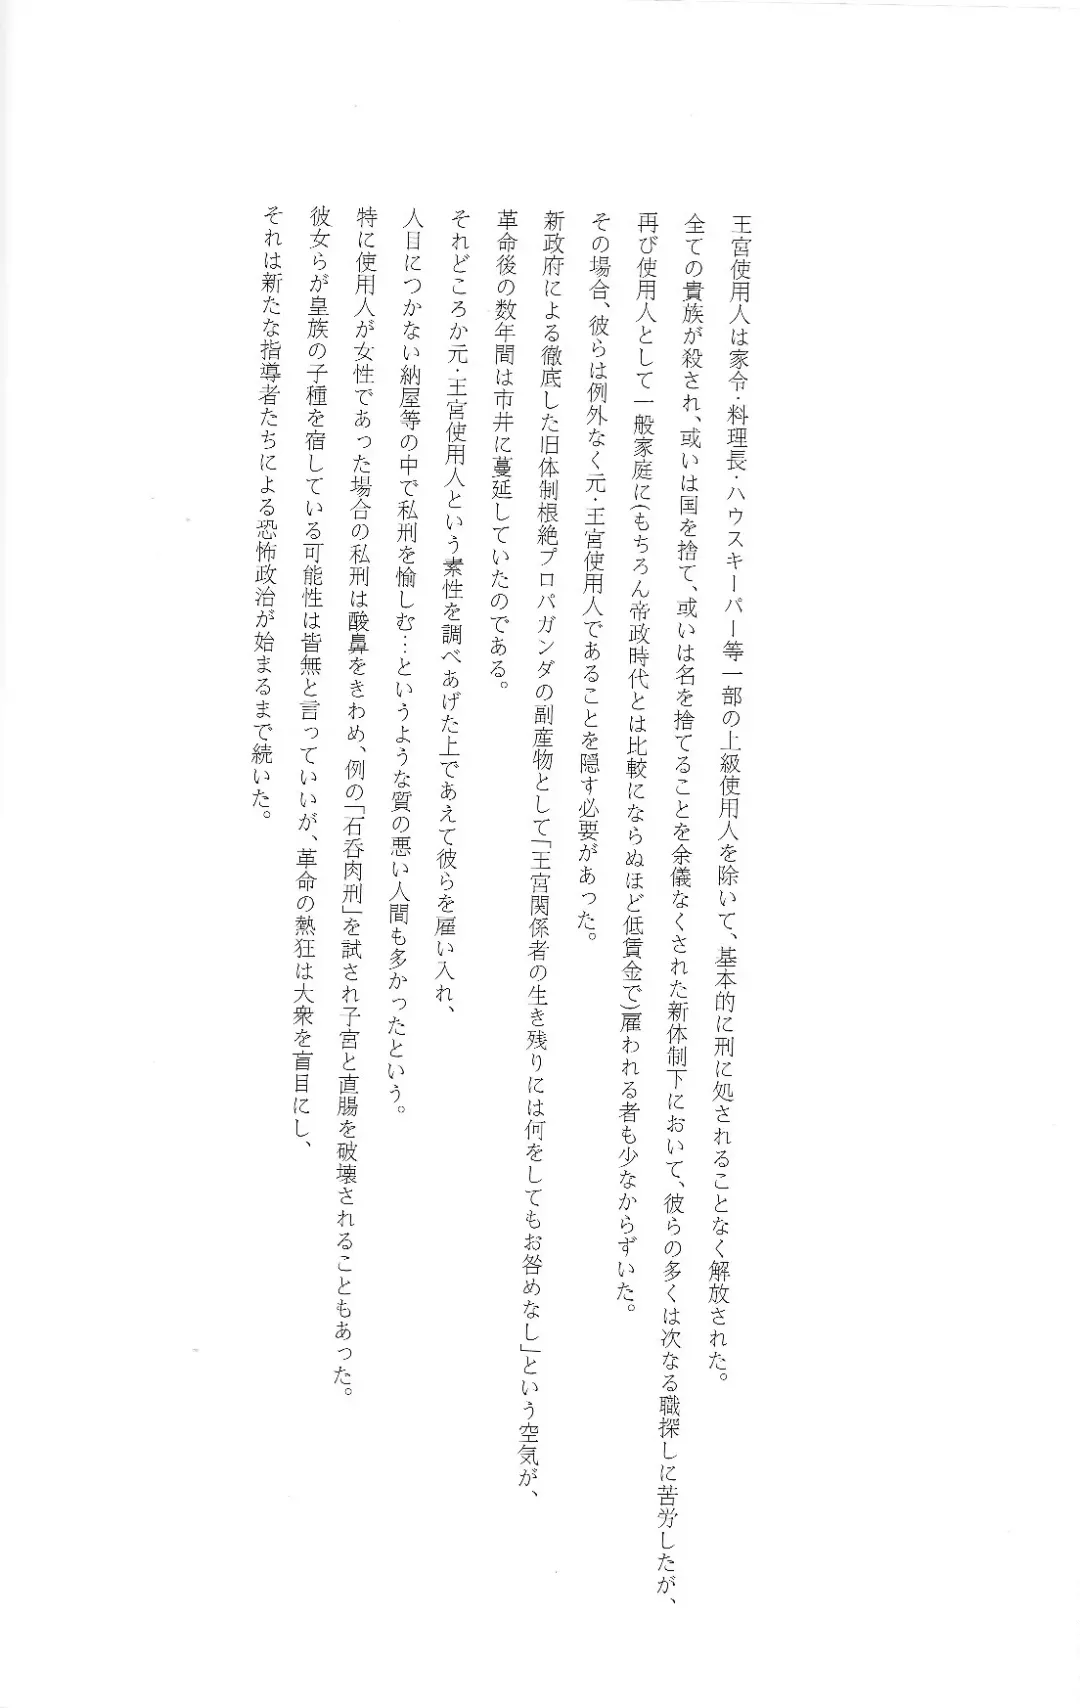 王宮使用人は家令・料理長・ハウスキーパー等一部の上級使用人を除いて、基本的に刑に処されることなく解放された。
全ての貴族が殺され、或いは国を捨て、或いは名を捨てることを余儀なくされた新体制下において、彼らの多くは次なる職探しに苦労したが、
再び使用人として一般家庭に(もちろん帝政時代とは比較にならぬほど低賃金で)雇われる者も少なからずいた。
その場合、彼らは例外なく元・王宮使用人であることを隠す必要があった。
新政府による徹底した旧体制根絶プロパガンダの副産物として「王宮関係者の生き残りには何をしてもお咎めなし」という空気が、
革命後の数年間は市井に蔓延していたのである。
それどころか元・王宮使用人という素性を調べあげた上であえて彼らを雇い入れ、
人目につかない納屋等の中で私刑を愉しむ…というような質の悪い人間も多かったという。
特に使用人が女性であった場合の私刑は酸鼻をきわめ、例の「石呑肉刑」を試され子宮と直腸を破壊されることもあった。
彼女らが皇族の子種を宿している可能性は皆無と言っていいが、革命の熱狂は大衆を盲目にし、
それは新たな指導者たちによる恐怖政治が始まるまで続いた。